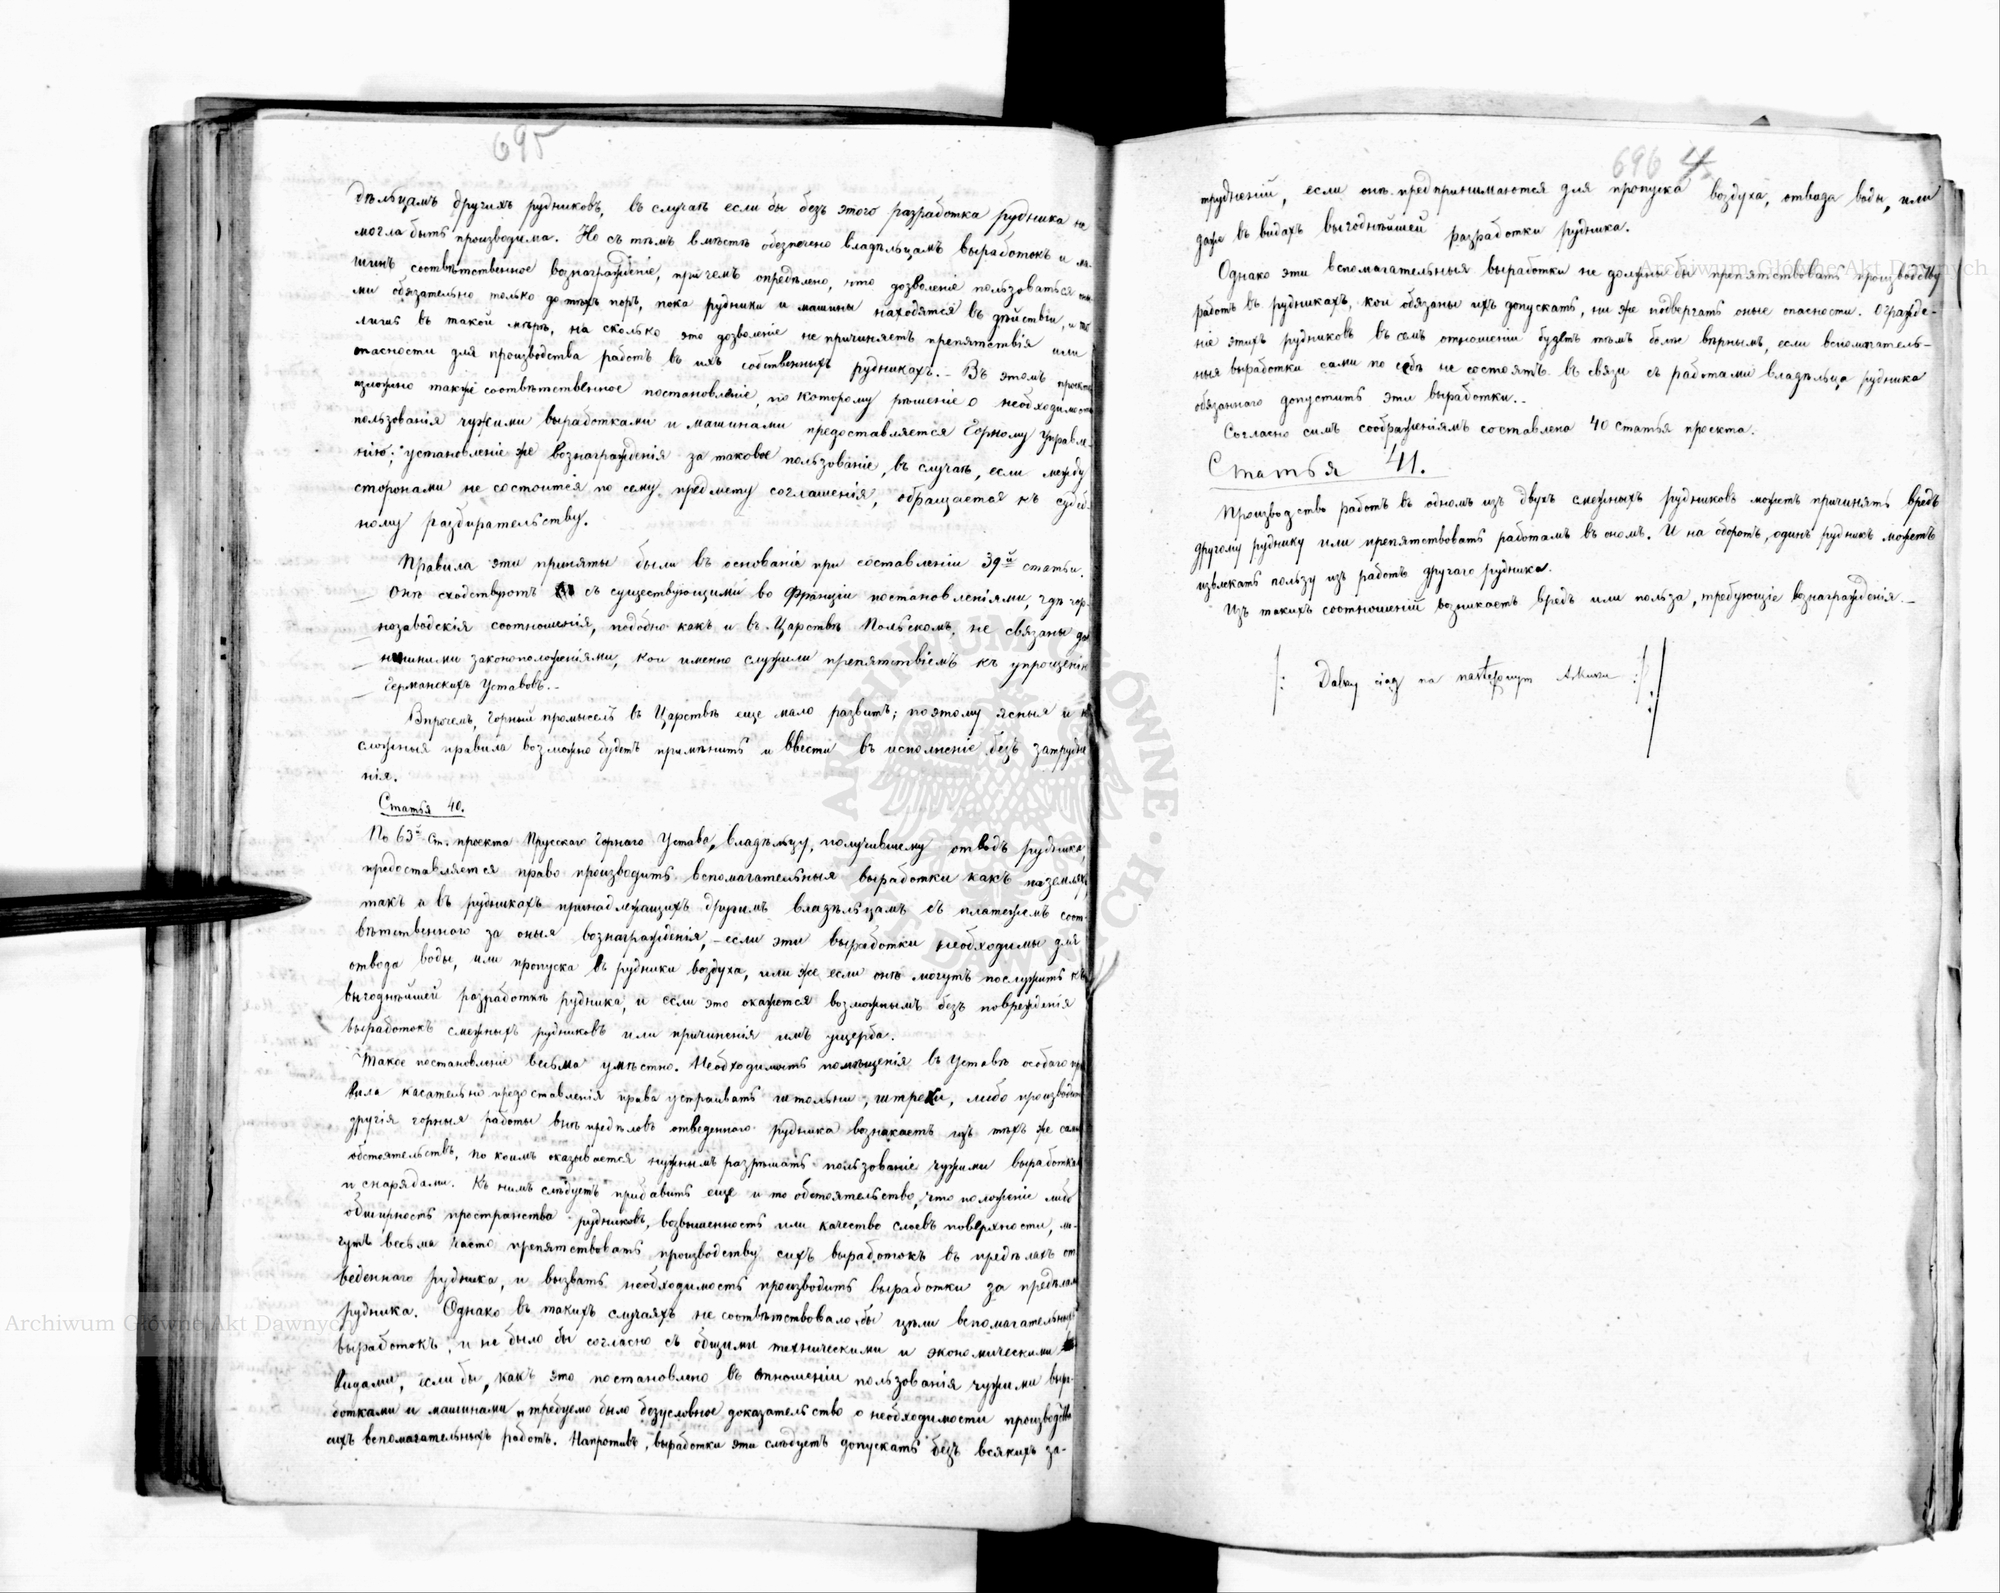 695
дѣльцамъ другихъ рудниковъ, въ случаѣ если бы безъ этого разработка рудника не
могла быть производима. Но съ тѣмъ вмѣстѣ обезпечено владѣльцамъ выработокъ и ма-
шинъ соотвѣтственное вознагражденіе, при чемъ опредѣлено, что дозволеніе пользоваться
ми обязательно только до тѣхъ поръ, пока рудники и машины находятся въ дѣйствіи, и
лишь въ такой мѣрѣ, на сколько это дозволеніе не причиняетъ препятствія или
опасности для производства работъ въ ихъ собственныхъ рудникахъ. – Въ этомъ проектѣ
изложено также соотвѣтственное постановленіе, по которому рѣшеніе о необходимости
пользованія чужими выработками и машинами предоставляется Горному Управле-
нію; установленіе же вознагражденія за таковое пользованіе, въ случаѣ, если между
сторонами не состоится по сему предмету соглашенія, обращается къ судеб-
ному разбирательству.
Правила эти приняты были въ основаніе при составленіи 39-й статьи.
Онѣ сходствуютъ съ существующими во Франціи постановленіями, гдѣ гор-
нозаводскія соотношенія, подобно какъ и въ Царствѣ Польскомъ, не связаны да-
внишними законоположеніями, кои именно служили препятствіемъ къ упрощенію
Германскихъ Уставовъ. –
Впрочемъ, горный промыселъ въ Царствѣ еще мало развитъ; поэтому ясныя и не
сложныя правила возможно будетъ примѣнить и ввести въ исполненіе безъ затрудне
нія.
Статья 40.
По 63й ст. проекта Прусскаго Горнаго Устава, владѣльцу, получившему отводъ рудника,
предоставляется право производить вспомагательныя выработки какъ на земляхъ,
такъ и въ рудникахъ принадлежащихъ другимъ владѣльцамъ съ платежемъ соот-
вѣтственнаго за оныя вознагражденія, – если эти выработки необходимы для
отвода воды, или пропуска въ рудники воздуха, или же если онѣ могутъ послужить къ
выгоднѣйшей разработкѣ рудника, и если это окажется возможнымъ безъ поврежденія
выработокъ смежныхъ рудниковъ или причиненія имъ ущерба.
Такое постановленіе весьма умѣстно. Необходимость помѣщенія въ Уставѣ особаго пра
вила касательно предоставленія права устраивать штольни, штреки, либо производить
другія горныя работы внѣ предѣловъ отведеннаго рудника возникаетъ изъ тѣхъ же самыхъ
обстоятельствъ, по коимъ оказывается нужнымъ разрѣшать пользованіе чужими выработками
и снарядами. Къ нимъ слѣдуетъ прибавить еще и то обстоятельство, что положеніе либо
обширность пространства рудниковъ, возвышенность или качество слоевъ поверхности, мо-
гутъ весьма часто препятствовать производству сихъ выработокъ въ предѣлахъ от
веденнаго рудника, и вызвать необходимость производить выработки за предѣлами
рудника. Однако въ такихъ случаяхъ не соотвѣтствовало бы цѣли вспомагательныхъ
выработокъ, и не было бы согласно съ общими техническими и экономическими
видами, если бы, какъ это постановлено въ отношеніи пользованія чужими выра-
ботками и машинами, требуемо было безусловное доказательство о необходимости производства
сихъ вспомагательныхъ работъ. Напротивъ, выработки эти слѣдуетъ допускать безъ всякихъ за-
696 4
трудненій, если онѣ предпринимаются для пропуска воздуха, отвода воды, или
даже въ видахъ выгоднѣйшей разработки рудника.
Однако эти вспомагательныя выработки не должны бы препятствовать производству
работъ въ рудникахъ, кои обязаны ихъ допускать, ни же подвергать оные опасности. Огражде-
ніе этихъ рудниковъ въ семъ отношеніи будетъ тѣмъ болѣе вѣрнымъ, если вспомагатель-
ныя выработки сами по себѣ не состоятъ въ связи съ работами владѣльца рудника
обязаннаго допустить эти выработки. –
Согласно симъ соображеніямъ составлена 40 статья проекта.
Статья 41.
Производство работъ въ одномъ изъ двухъ смежныхъ рудниковъ можетъ причинять вредъ
другому руднику или препятствовать работамъ въ ономъ. И на оборотъ, одинъ рудникъ можетъ
извлекать пользу изъ работъ другаго рудника.
Изъ такихъ соотношеній возникаетъ вредъ или польза, требующіе вознагражденія. –
/: Dalszy ciąg na następnym Arkuszu :/
Archiwum Główne Akt Dawnych
Archiwum Główne Akt Dawnych
ARCHIWUM GŁÓWNE AKT DAWNYCH